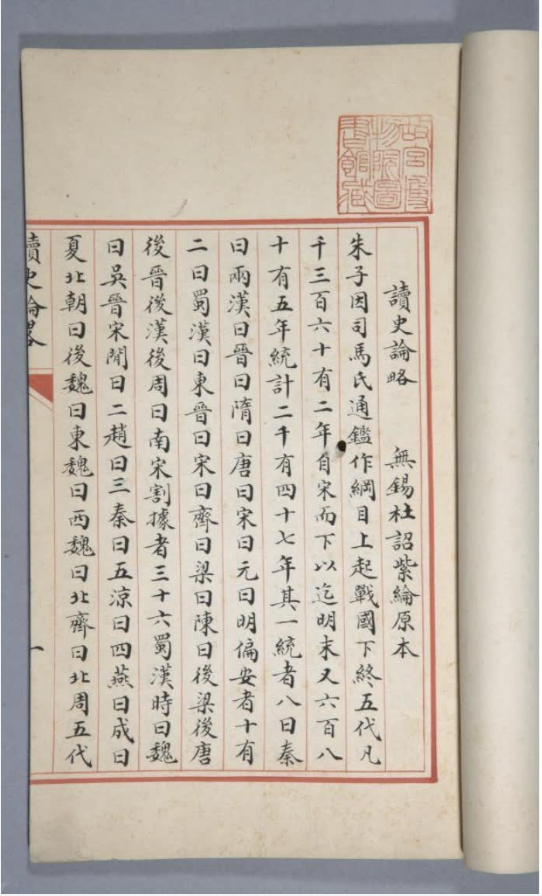 故宮博
物院圖
書館藏
讀史論略　無錫杜詔紫綸原本
朱子因司馬氏通鑑作綱目上起戰國下終五代凡
千三百六十有二年自宋而下以迄明末又六百八
十有五年統計二千有四十七年其一統者八曰秦
曰兩漢曰晉曰隋曰唐曰宋曰元曰明偏安者十有
二曰蜀漢曰東晉曰宋曰齊曰梁曰陳曰後梁後唐
後晉後漢後周曰南宋割據者三十六蜀漢時曰魏
曰吳晉宋間曰二趙曰三秦曰五涼曰四燕曰成曰
夏北朝曰後魏曰東魏曰西魏曰北齊曰北周五代
讀史論略
一